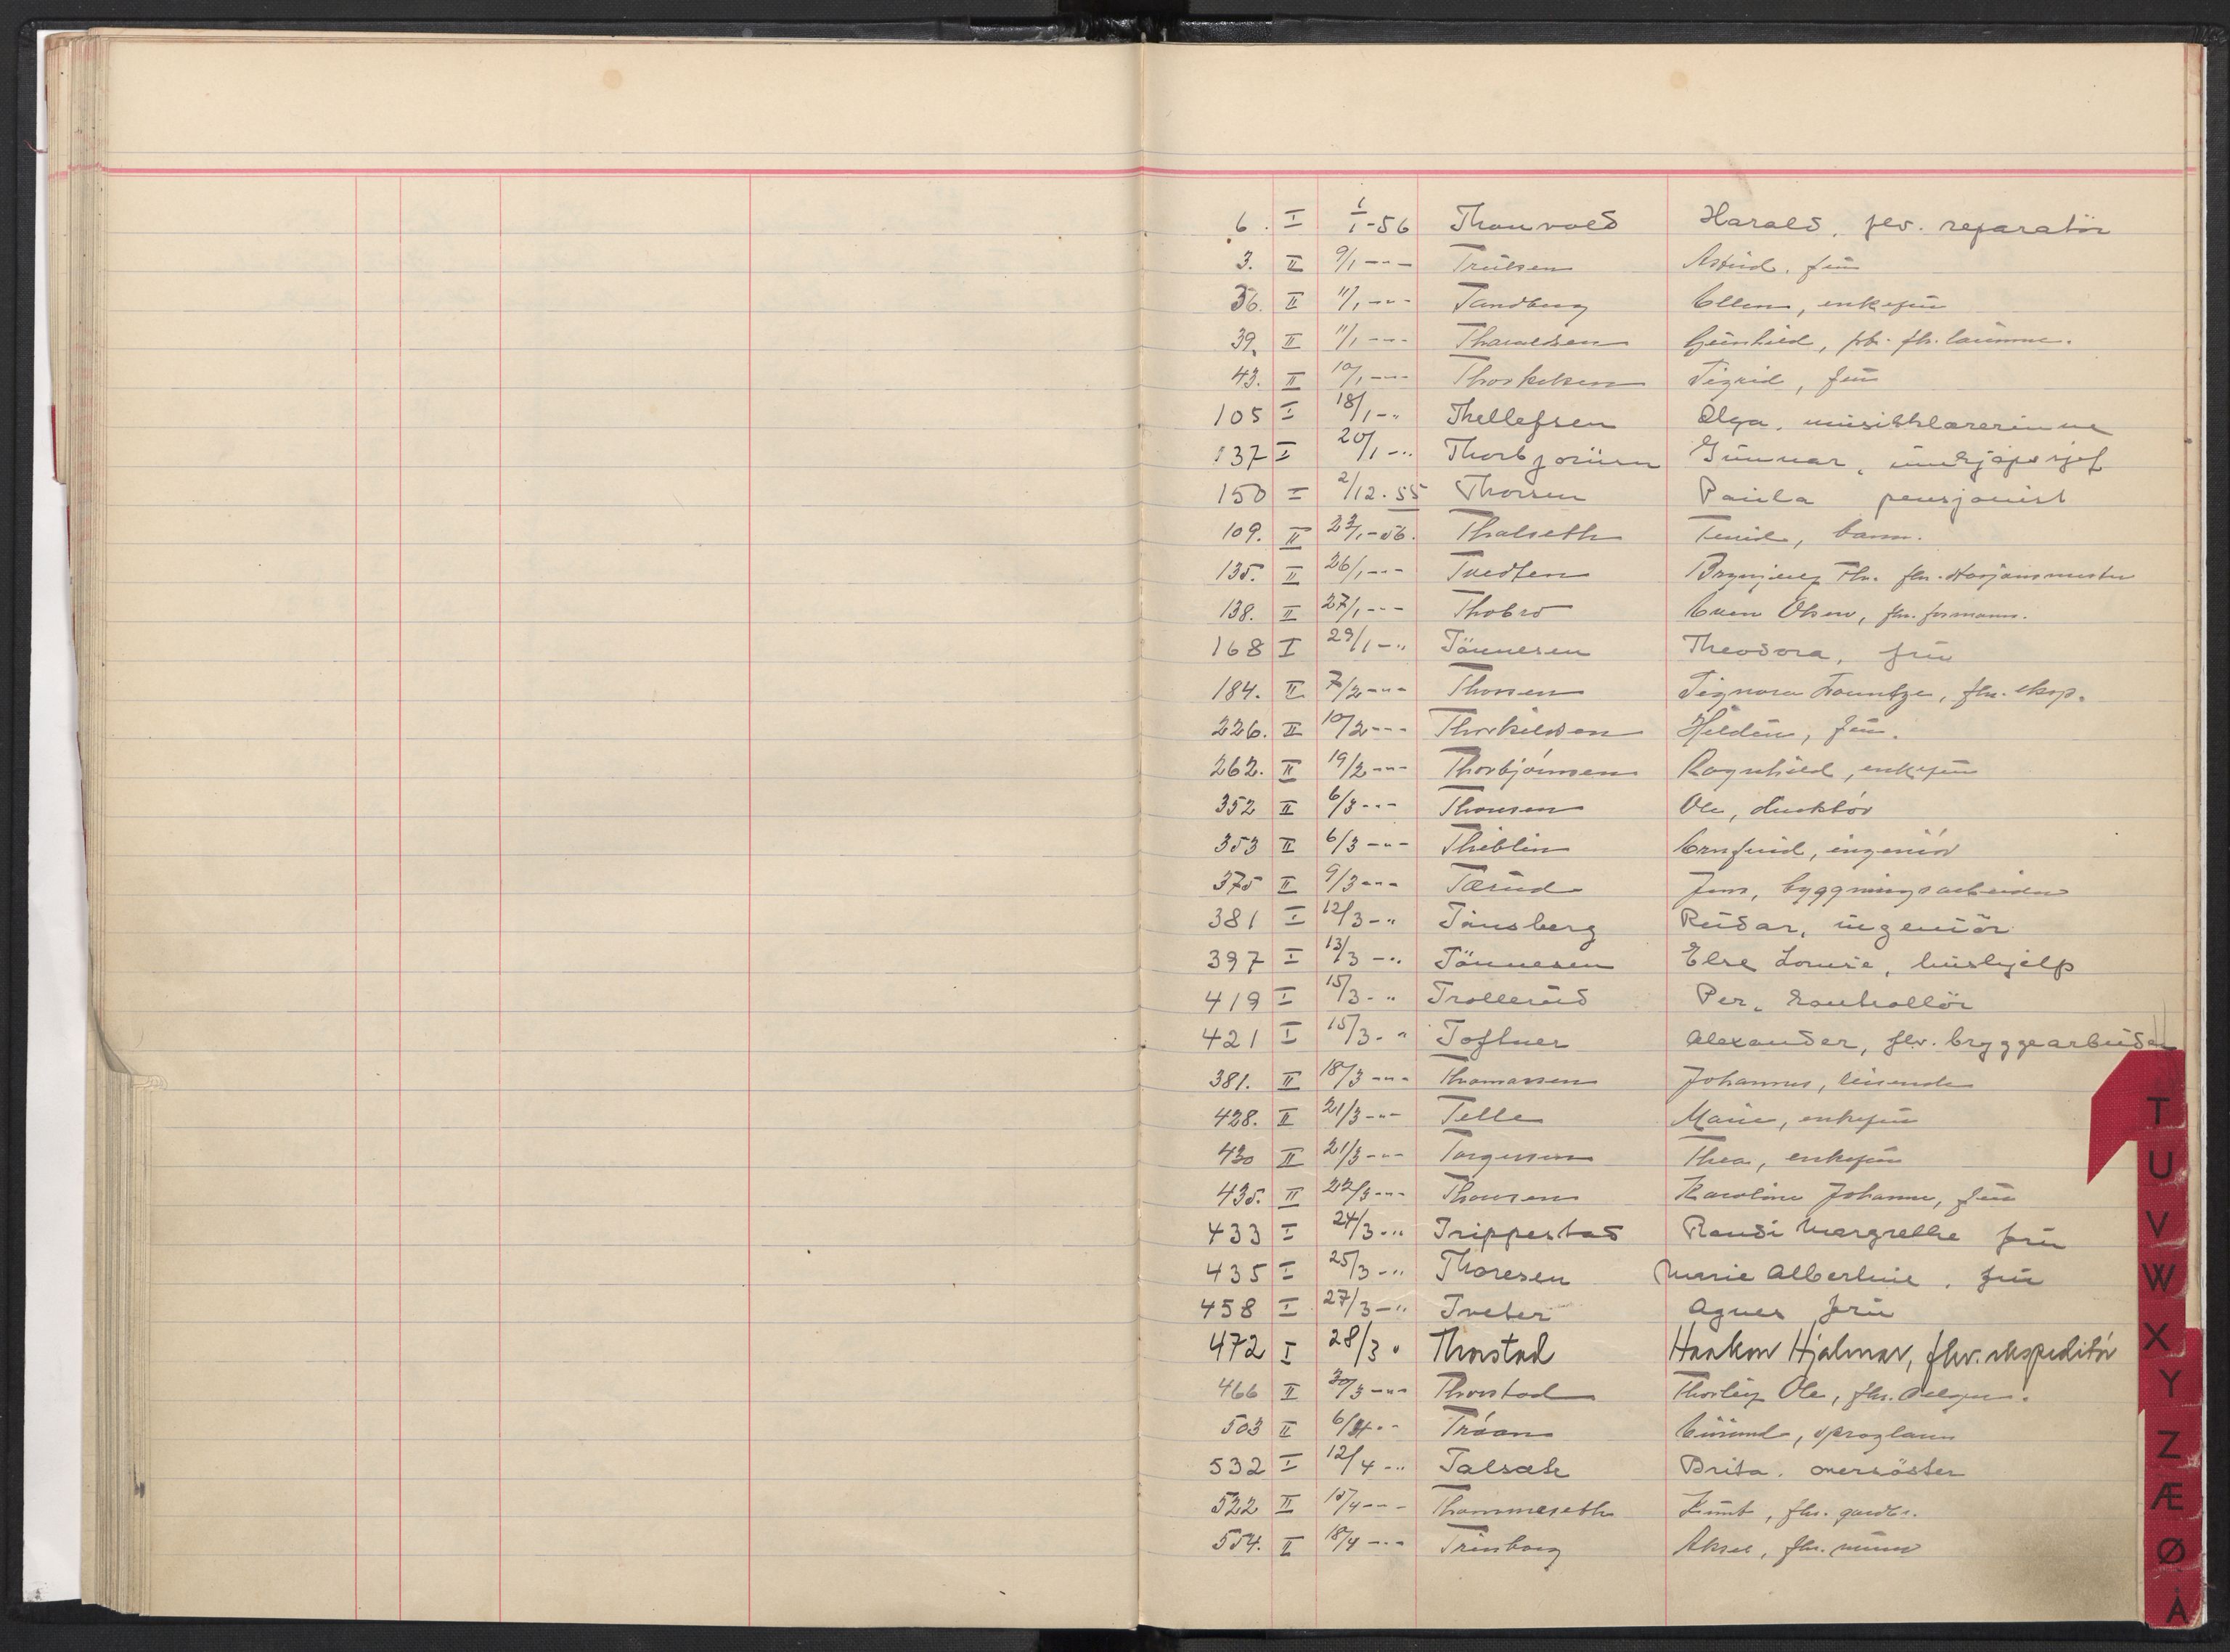 6. I 1/1-56 Thonvold Harald, flv. reparatör
3. II 9/1 -"- Trulsen Astrid, frü
36. II 11/1 -"- Tandberg Ellen, enkefrü
39. II 11/1 -"- Tharaldsen Günhild,
43. II 10/1 -"- Thorkelsen Sigrid, frü
105 I 18/1 -" Thellefsen Olga, müsikklærerinne
137 I 20/1 -" Thorbjörnsen Günnar, innkjöpssjef
150 I 2/12.55 Thorsen Paüla pensjonist
109. II 23/1-56. Thalseth Turid, barn.
135. II 26/1 -"- Tvedten
138. II 27/1 -"- Thobro Even Olsen, fhv. formann.
168 I 29/1 -" Tönnesen Theodora, frü
184. II 7/2 -"- Thorsen Signora
226. II 10/2 -"- Thorkildsen Hildür, frü.
262. II 19/2 -"- Thorbjörnsen Ragnhild, enkefrü
352 II 6/3 -"- Thonsen Ole, direktör
353 II 6/3 -"- Thiblin Ernfrid, ingeniör
375 II 9/3 -"- Tærüd Jens, bygningsarbeider
381 I 12/3 -" Tönsberg Reidar, ingeniör
397 I 13/3 -" Tönnesen Else Louise, hüshjelp
419 I 15/3 -" Trollerüd Per, kontrollör
421 I 15/3 -" Toftner Alexander, flv. bryggearbeider
381. II 18/3 -"- Thomassen Johannes, reisende
428. II 21/3 -"- Telle Marie, enkefrü
430 II 21/3 -"- Torgersen Thea, enkefrü
435. II 22/3 -"- Thonsen Karoline Johanne, frü
433 I 24/3 -" Trippestad Randi Margrethe frü
435 I 25/3 -" Thoresen Marie Albertine, frü
458 I 27/3 -" Tveter Agnes frü
472 I 28/3 " Thorstad Haakon Hjalmar, fhv. ekspeditör
466 II 30/3 -"- Thorstad Thorleif Ole, fhv.
503 II 6/4 -"- Tröan
532 I 12/4 -" Talsæth Brita, oversöster
522 II 15/4 -"- Thommeseth Knüt, fhv. gårdbr.
554. II 18/4 -"- Trinborg Aksel, fhv. mürer
T
U
V
W
X
Y
Z
Æ
Ø
Å